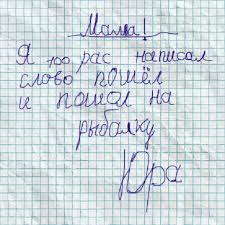 Мама!
Я 100 рас написал
слово пошёл
и пошол на
рыбалку
Юра